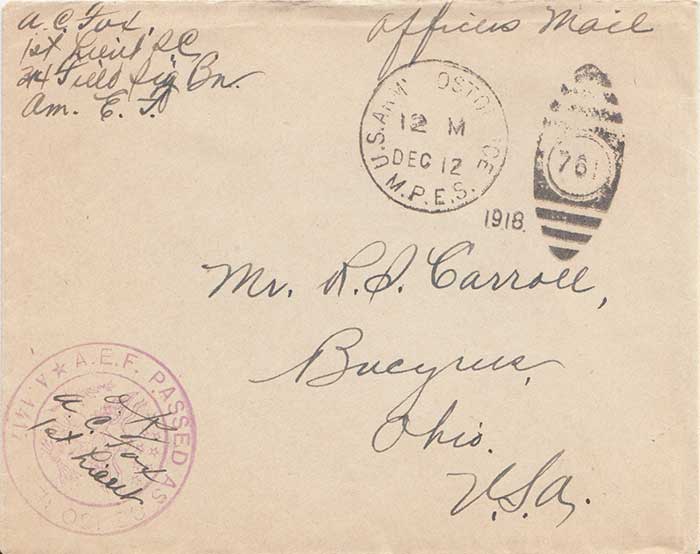 A. C. Fox,
1st Lieut, S.C.
314 Field Sig. Bn.
Am. E. F.
Officers Mail
U.S. ARMY POST OFFICE
12 M
DEC 12
M.P.E.S.
1918.
761
Mr. R. S. Carroll,
Bucyrus,
Ohio.
U.S.A.
A.E.F. PASSED AS
O.K.
A. C. Fox
1st Lieut